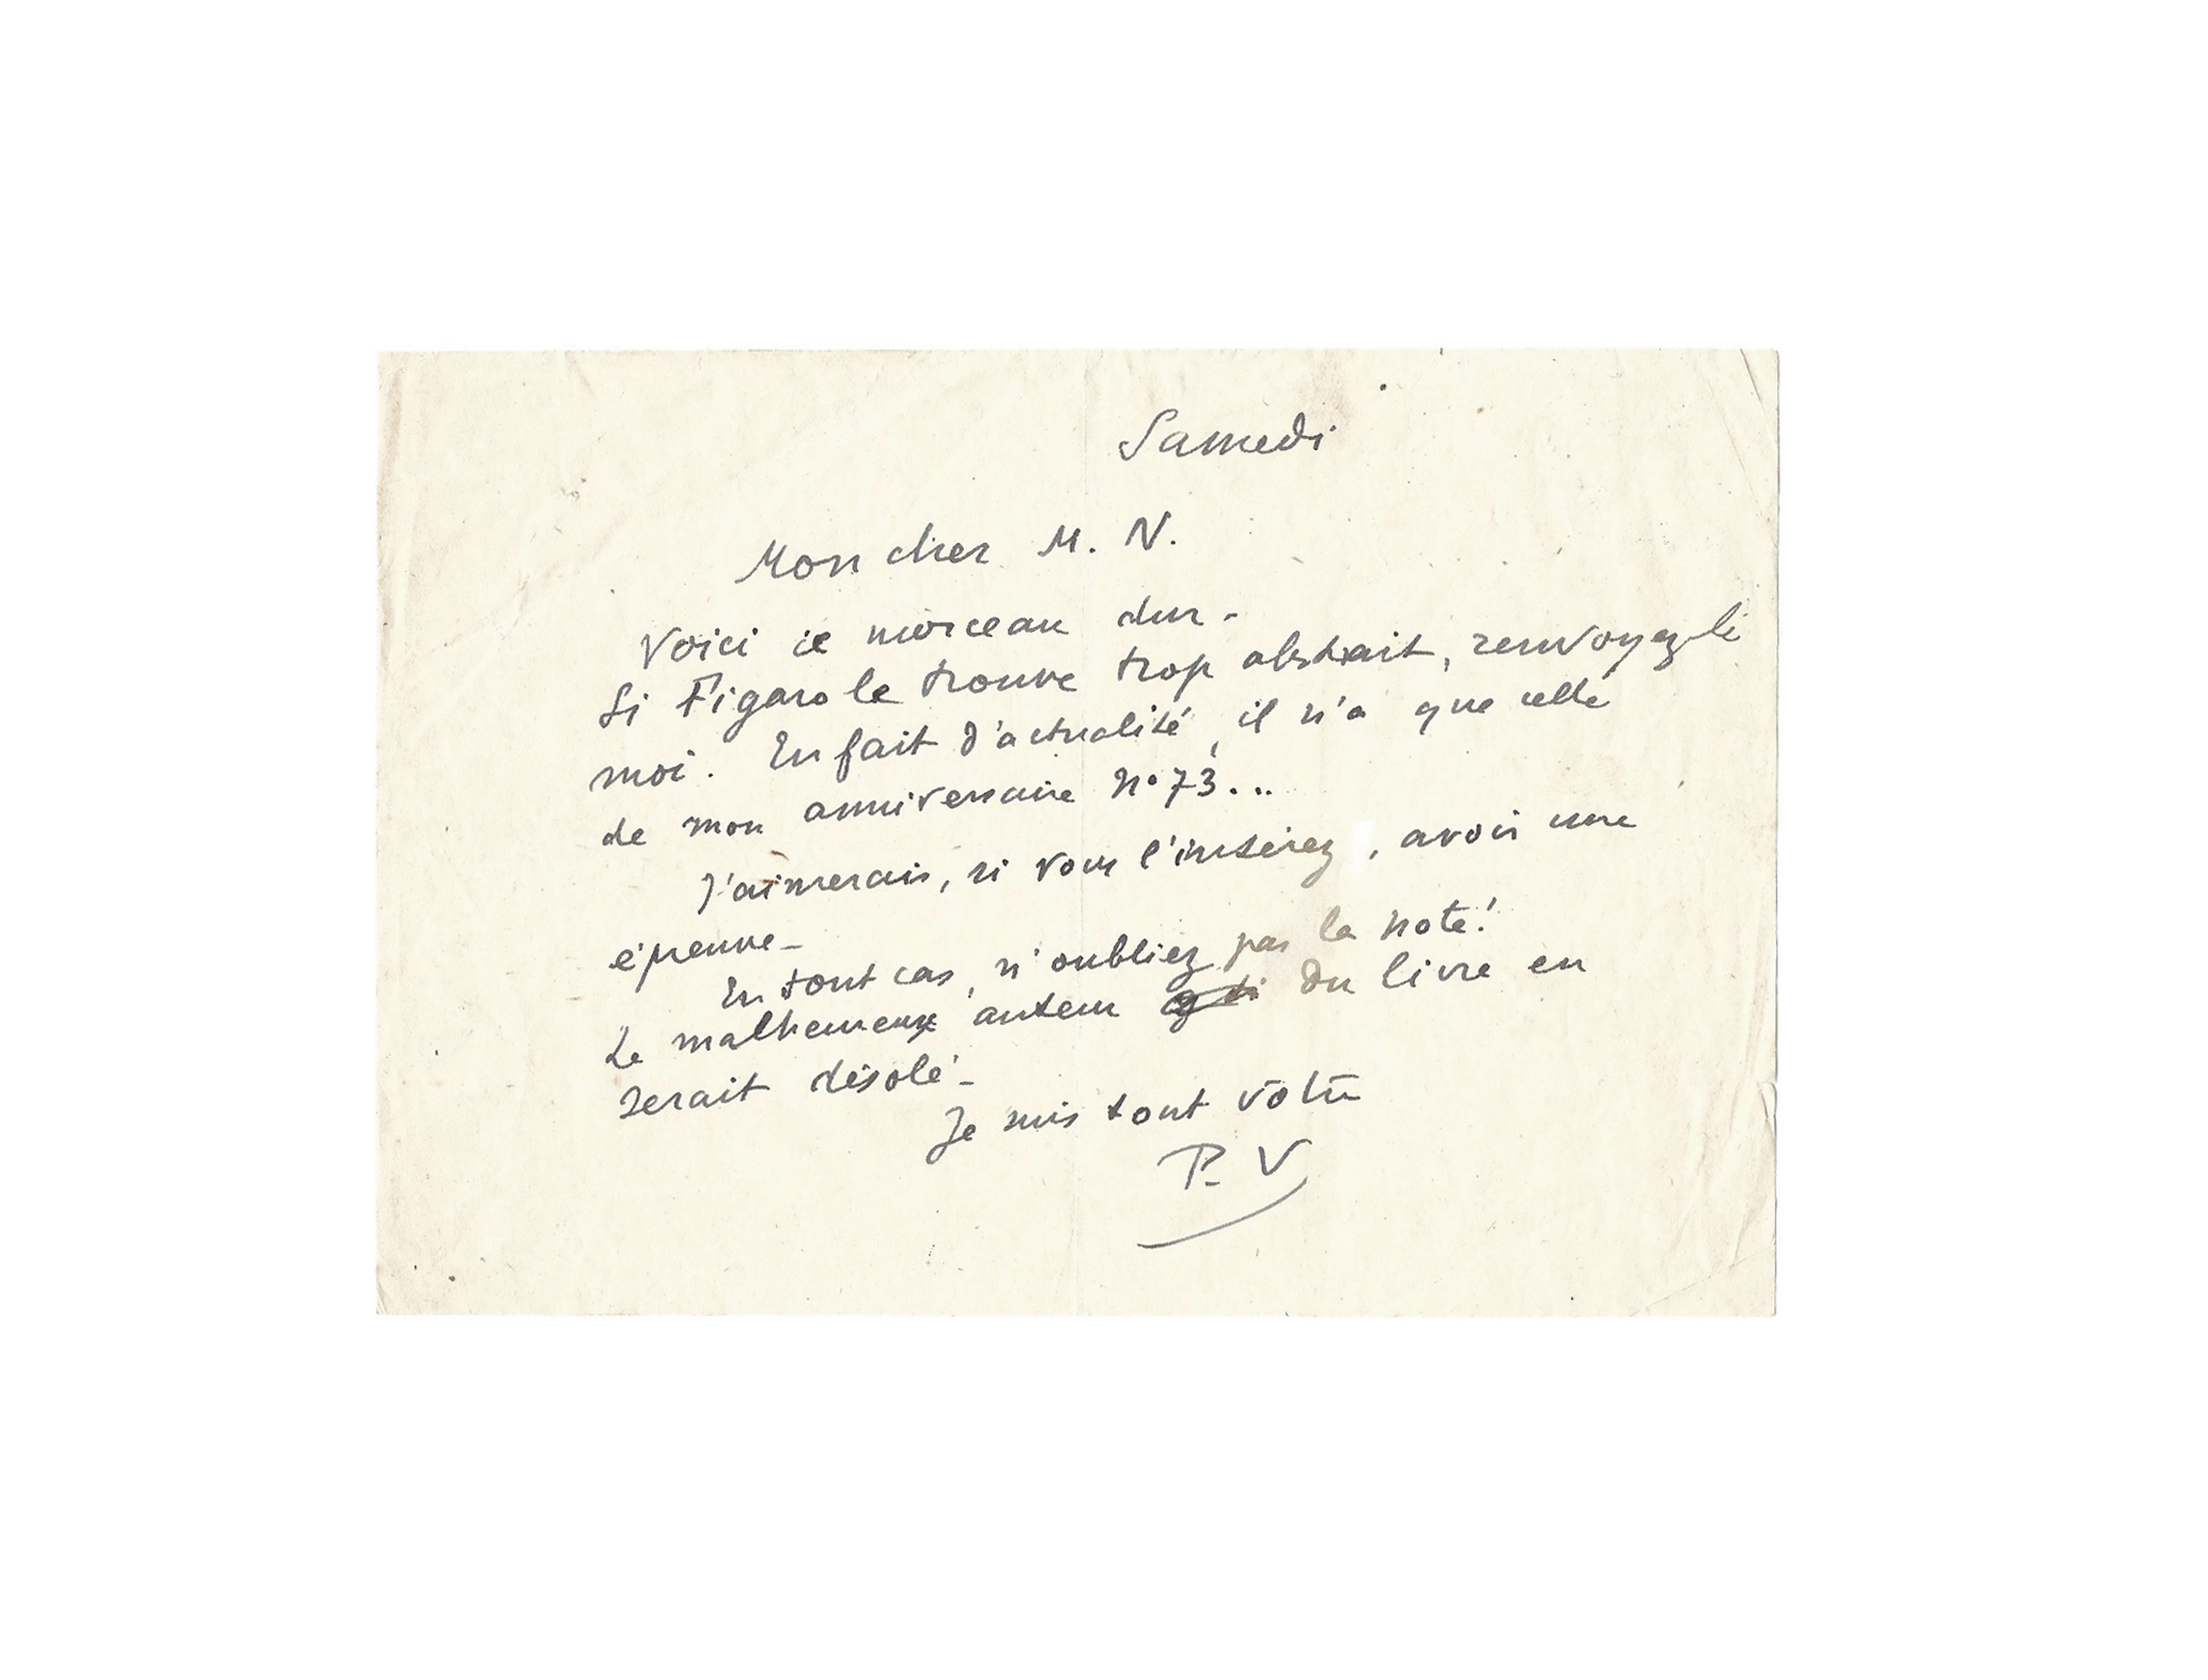 Samedi
Mon cher M. N.
Voici ce morceau dur -
Si Figaro le trouve trop abstrait, renvoyez-le
moi. En fait d'actualité, il n'a que celle
de mon anniversaire n° 73...
J'aimerais, si vous l'insérez, avoir une
épreuve -
En tout cas, n'oubliez pas la note!
Le malheureux auteur du livre en
serait désolé -
Je suis tout vôtre
P. V